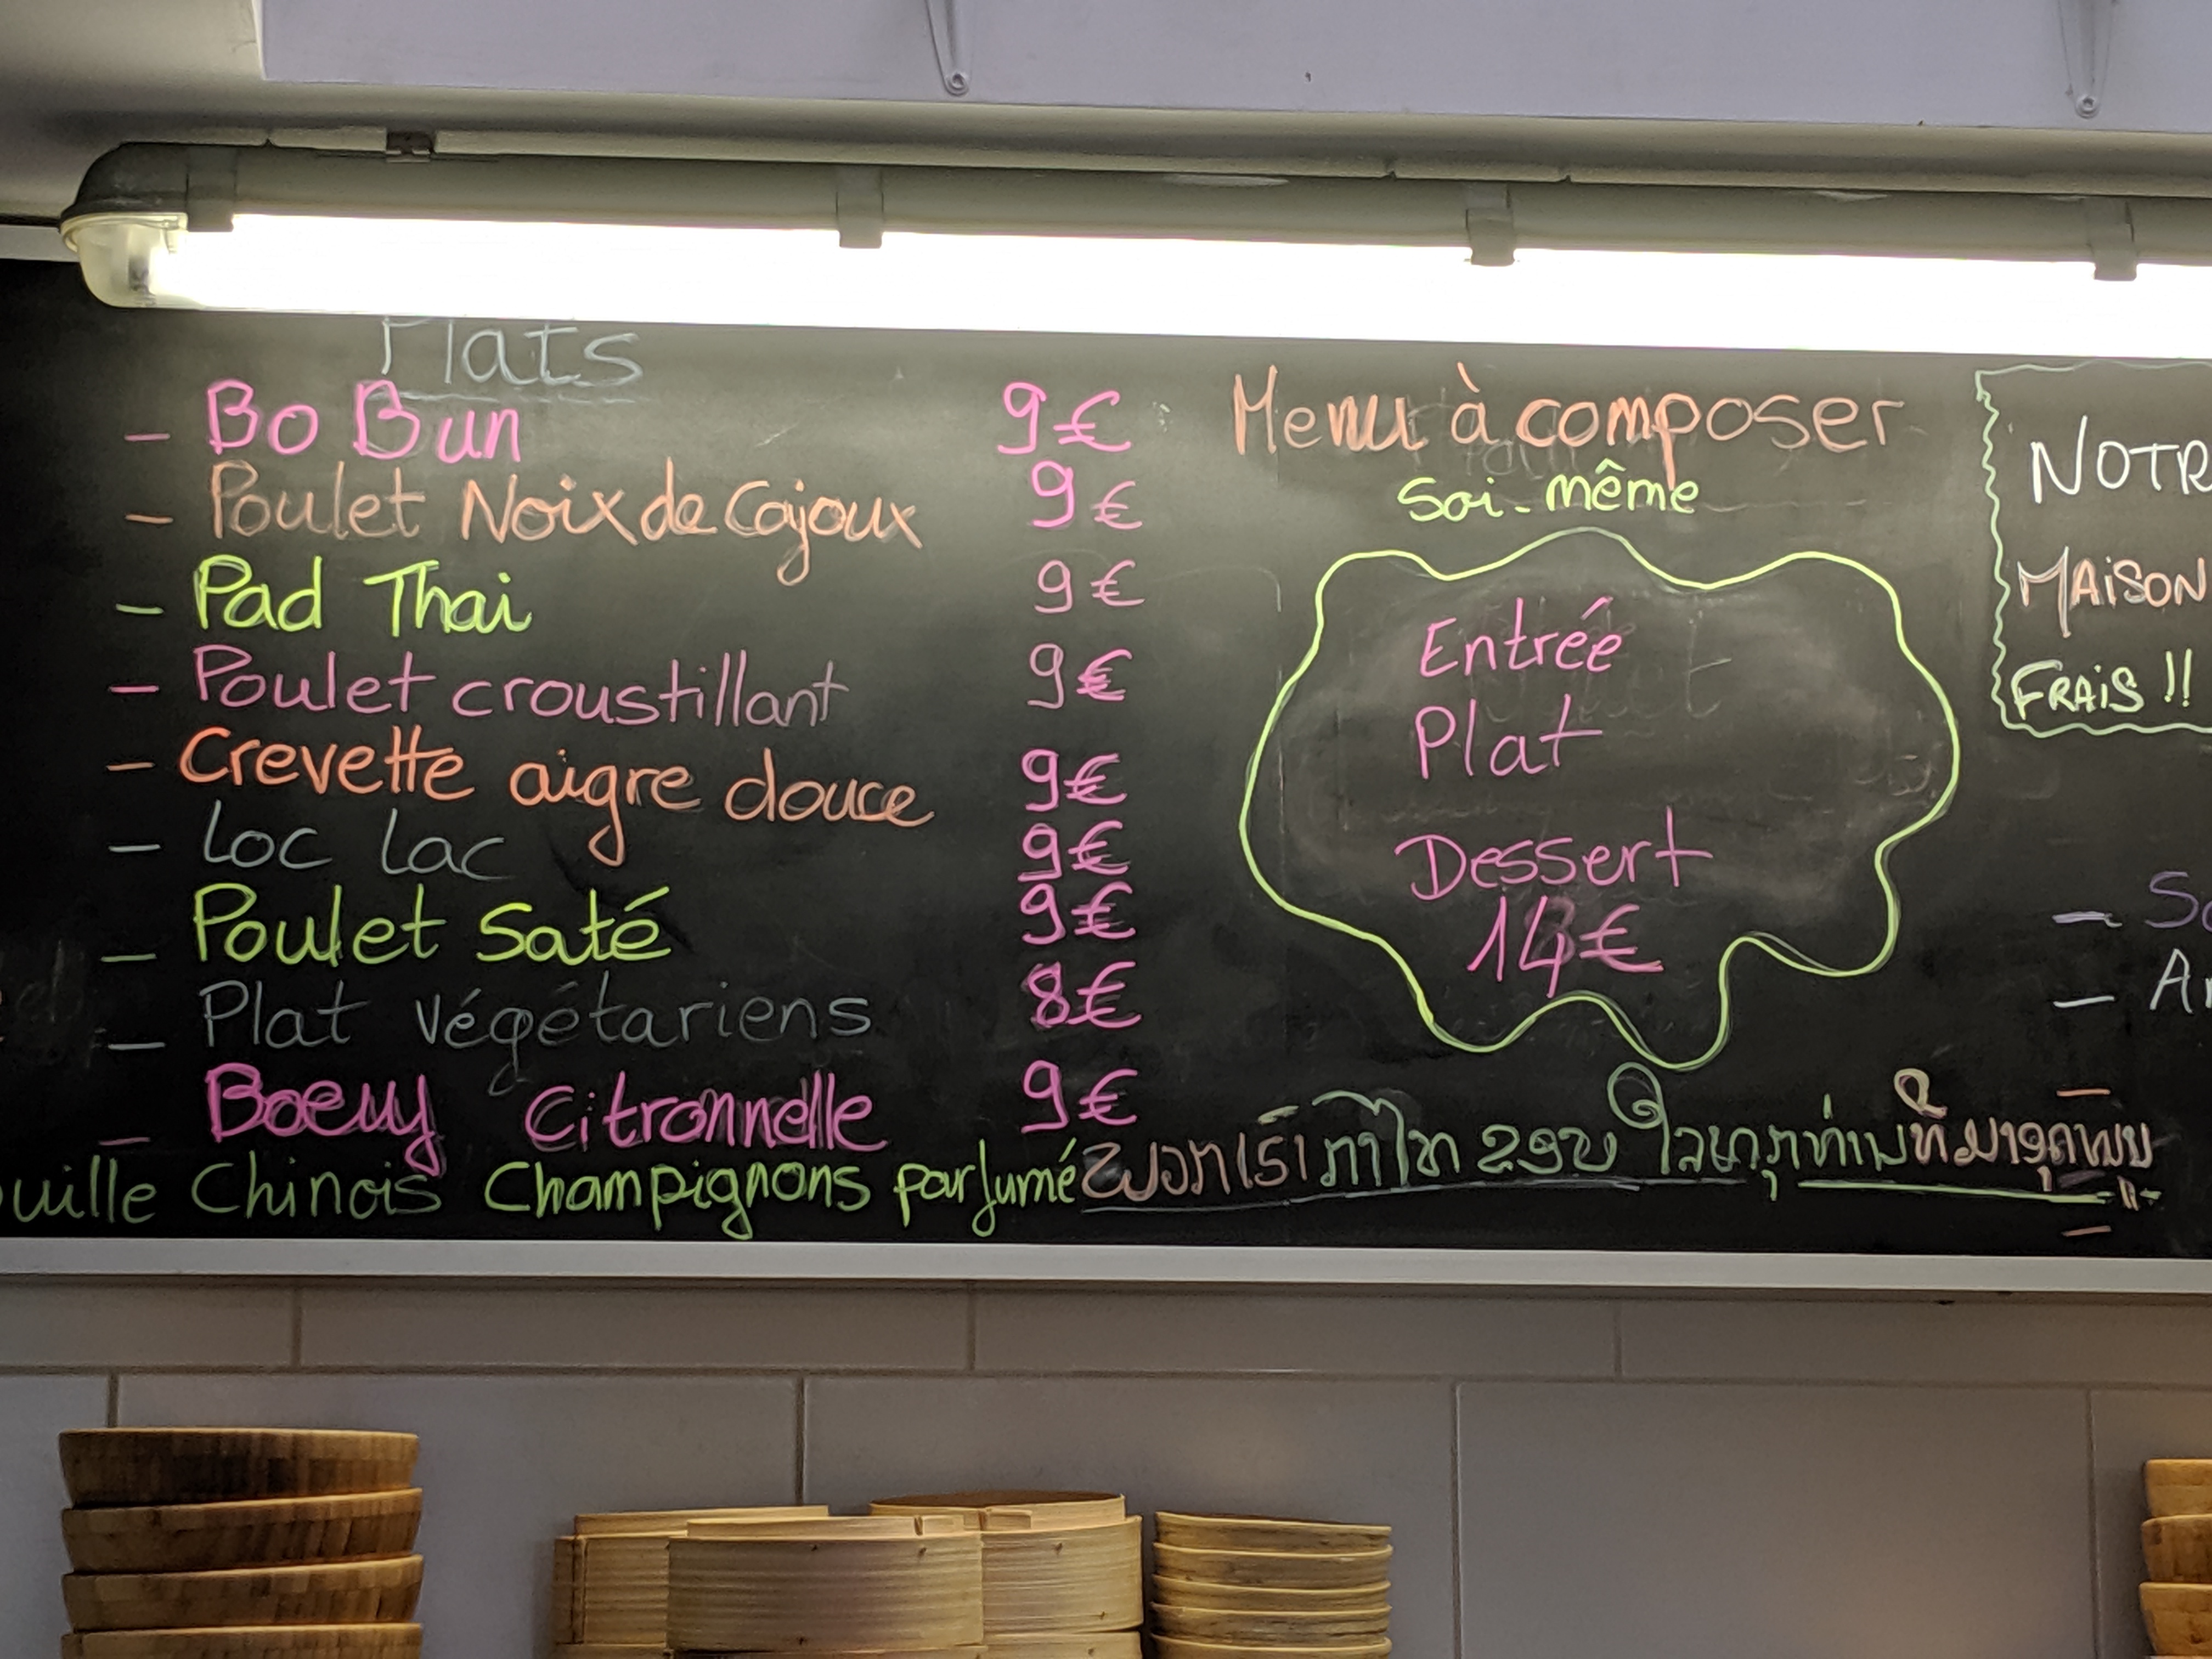 Plats
– Bo Bun 9€
– Poulet Noix de Cajoux 9€
– Pad Thai 9€
– Poulet croustillant 9€
– Crevette aigre douce 9€
– Loc Lac 9€
– Poulet Saté 9€
– Plat végétariens 8€
– Boeuf Citronnelle 9€
Chinois Champignons parfumé
Menu à composer
Soi-même
Entrée
Plat
Dessert
14€
MAISON
FRAIS !!